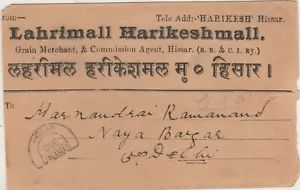 From—
Tele Add:-'HARIKESH' Hissar.
Lahrimall Harikeshmall.
Grain Merchant, & Commission Agent, Hissar. (B. B. & C. I. Ry.)
लहरीमल हरीकेशमल मु० हिसार।
To
Harnandrai Ramanand
Naya Bazar
Delhi